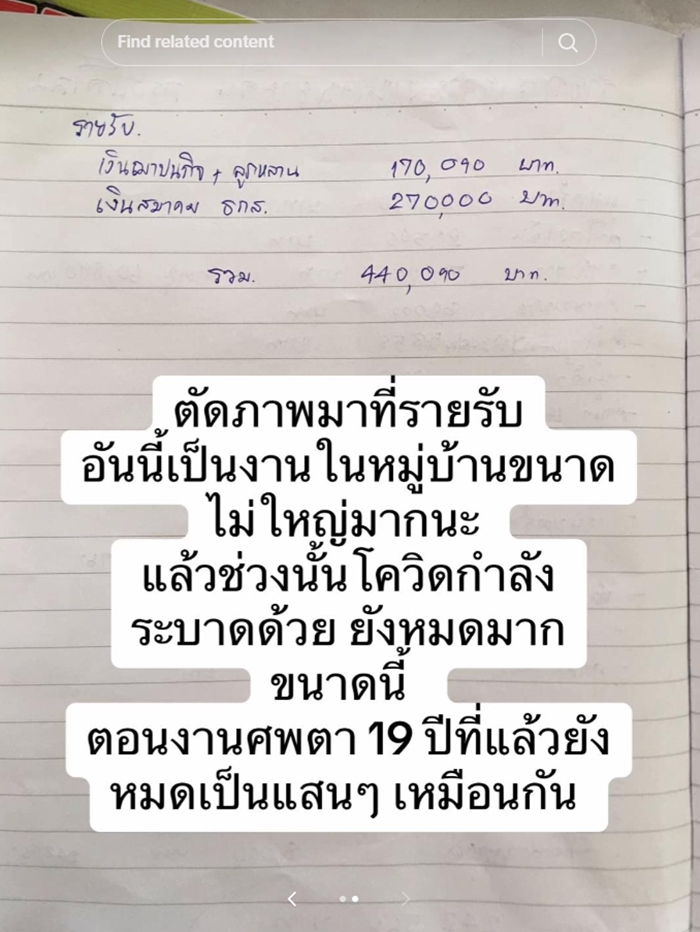 Find related content
รายรับ.
เงินฌาปนกิจ + ลูกหลาน 170,090 บาท.
เงินสมาคม ธกส. 270,000 บาท.
รวม. 440,090 บาท.
ตัดภาพมาที่รายรับ
อันนี้เป็นงานในหมู่บ้านขนาด
ไม่ใหญ่มากนะ
แล้วช่วงนั้นโควิดกำลัง
ระบาดด้วย ยังหมดมาก
ขนาดนี้
ตอนงานศพตา 19 ปีที่แล้วยัง
หมดเป็นแสนๆ เหมือนกัน